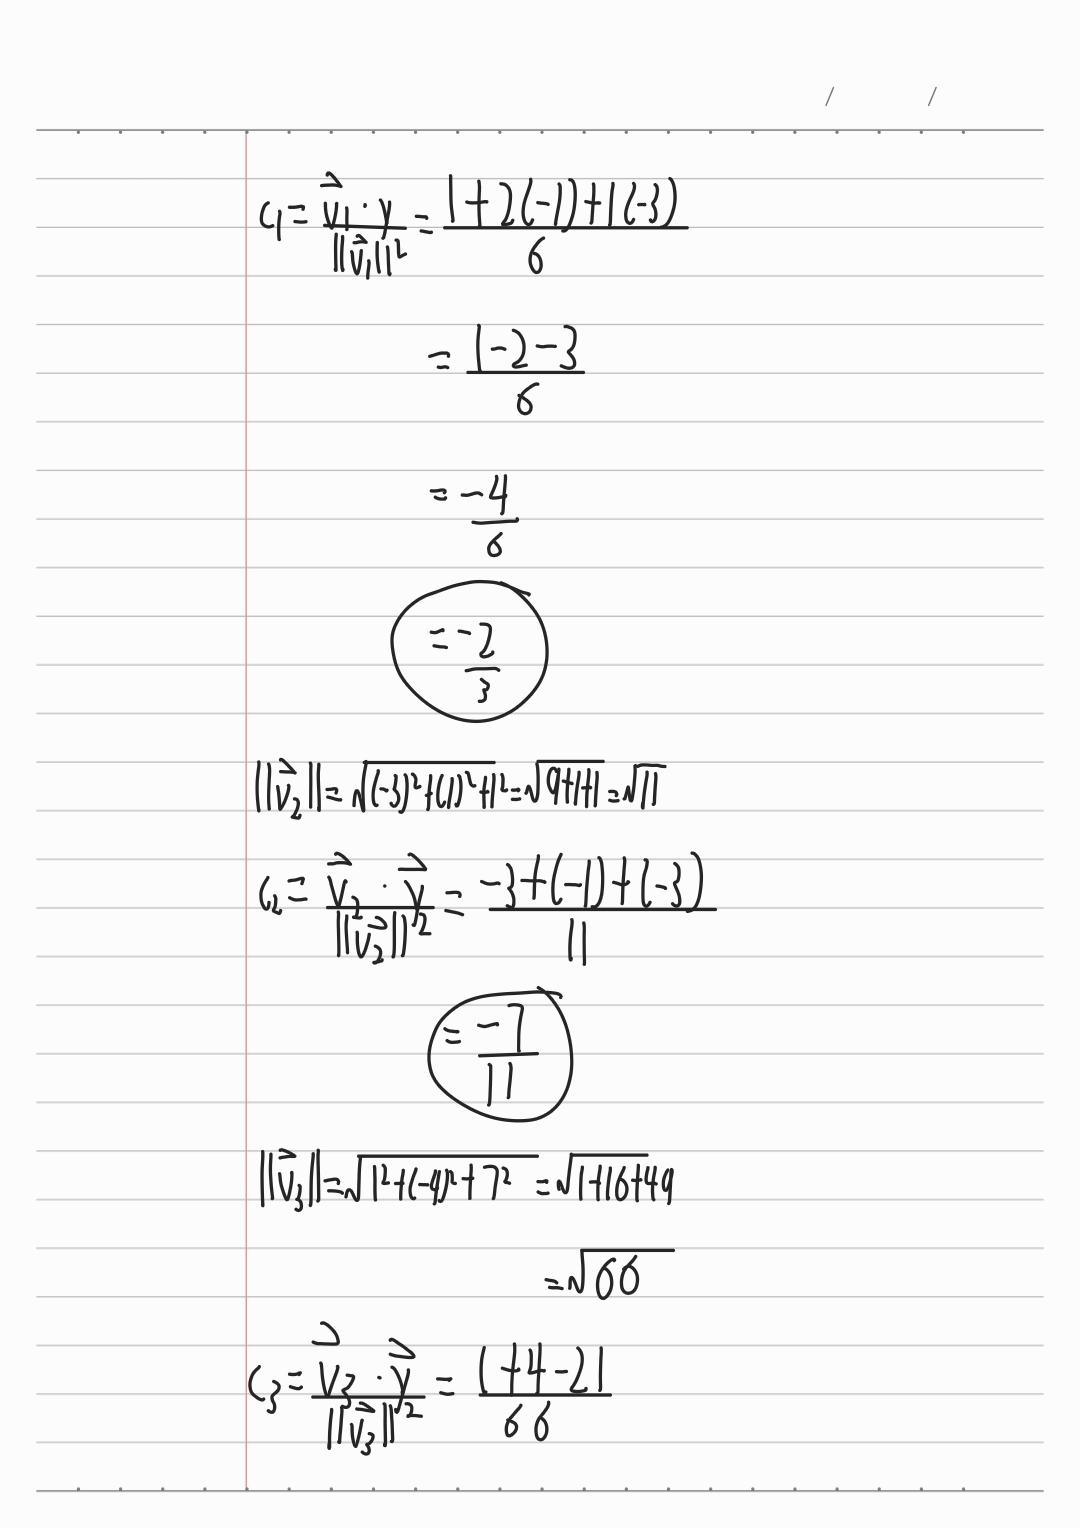 / /
c₁ = v⃗₁ · y / ||v⃗₁||² = 1 + 2(-1) + 1(-3) / 6
= 1 - 2 - 3 / 6
= -4 / 6
= -2 / 3
||v⃗₂|| = √((-3)² + (1)² + 1²) = √(9+1+1) = √11
c₂ = v⃗₂ · y⃗ / ||v⃗₂||² = -3 + (-1) + (-3) / 11
= -7 / 11
||v⃗₃|| = √(1² + (-4)² + 7²) = √(1+16+49)
= √66
c₃ = v⃗₃ · y⃗ / ||v⃗₃||² = 1 + 4 - 21 / 66